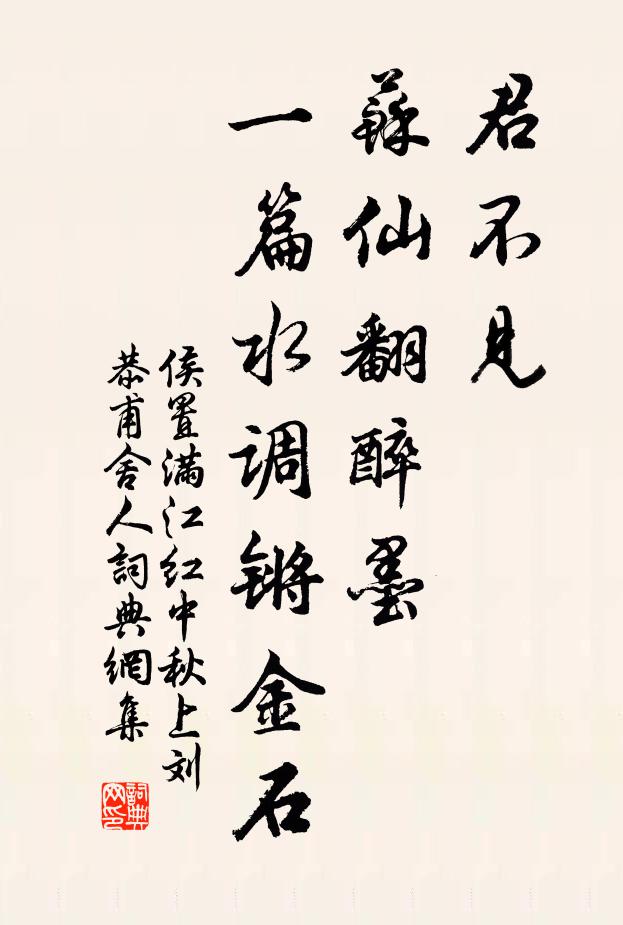 君不见
蘇仙翻醉墨
一篇水调锵金石
侯置满江红中秋上刘
恭甫舍人詞典網集
詞典
网印